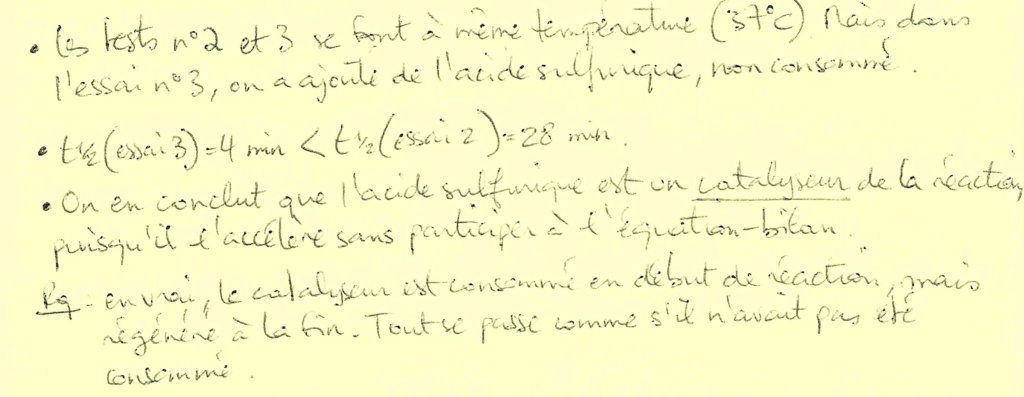 • Les tests n°2 et 3 se font à même température (37°C). Mais dans
l'essai n°3, on a ajouté de l'acide sulfurique, non consommé.
• t½(essai 3)=4 min < t½(essai 2)=28 min.
• On en conclut que l'acide sulfurique est un catalyseur de la réaction,
puisqu'il l'accélère sans participer à l'équation-bilan.
Rq : en vrai, le catalyseur est consommé en début de réaction, mais
régénéré à la fin. Tout se passe comme s'il n'avait pas été
consommé.